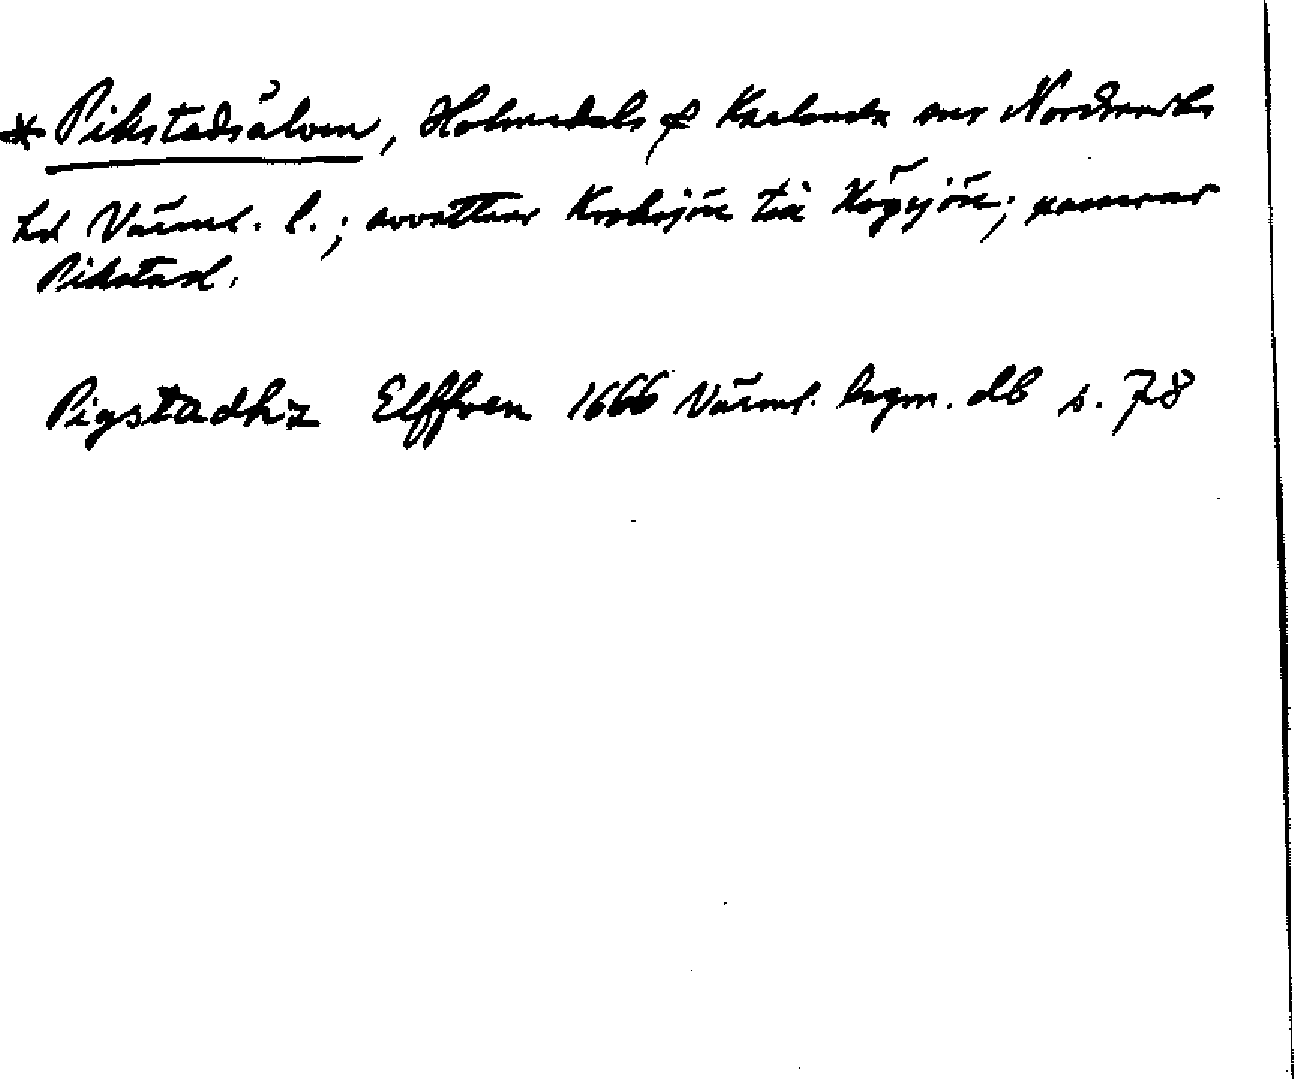 * Pikstadsälven, Holmedals o Karlanda snr Nordmarks
hd Värml. l.; avvattnar Kroksjön till Högsjön; passerar
Pikstad.
Pigstadhz Elffven 1666 Värml. lagm. db s. 78